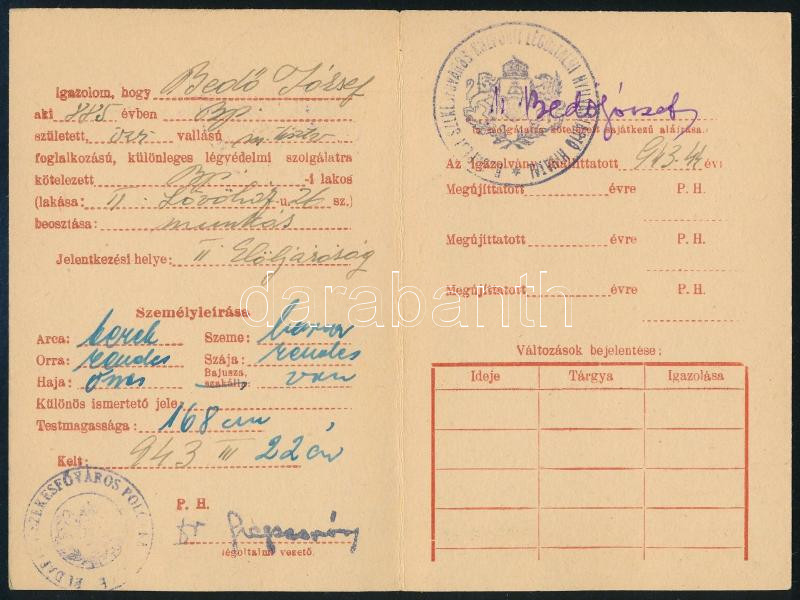 Igazolom, hogy Bedő József
aki 885 évben Bp.
született, izr vallású
foglalkozású, különleges légvédelmi szolgálatra
kötelezett Bp. -i lakos
(lakása: II. u. 26 sz.)
beosztása: munkás
Jelentkezési helye: II. Elöljáróság
Személyleírása
Arca: kerek Szeme: barna
Orra: rendes Szája: rendes
Haja: őszes Bajusza, szakáll: van
Különös ismertető jele:
Testmagassága: 168 cm
Kelt: 943 III 22 én
P. H.
Dr
légoltalmi vezető.
SZÉKESFŐVÁROS POLG
BUDAPEST SZÉKESFŐVÁROS KÖZPONTI LÉGOLTALMI NYILVÁNTARTÓ HIVATAL
Bedő József
(a szolgálatra kötelezett sajátkezű aláírása.)
Az igazolvány kiállíttatott 943.44 évre
Megújíttatott évre P. H.
Megújíttatott évre P. H.
Megújíttatott évre P. H.
Változások bejelentése:
Ideje Tárgya Igazolása
darabanth